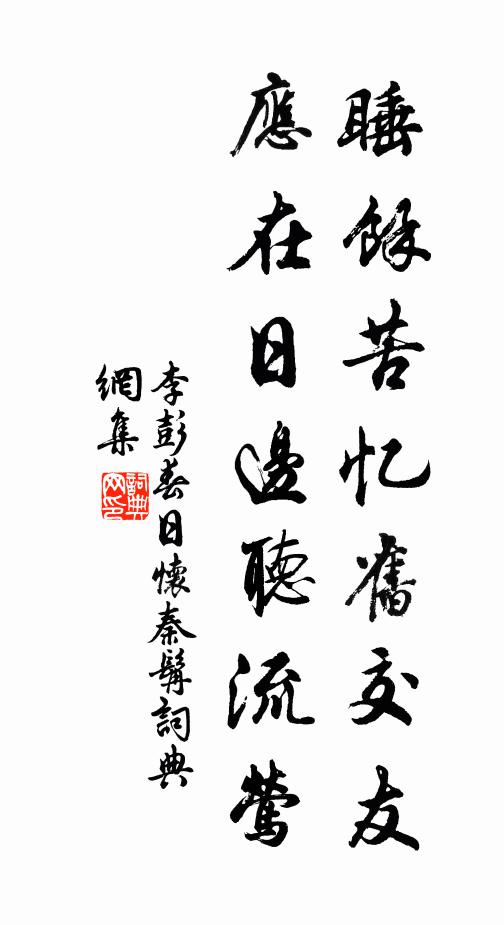 睡餘苦忆舊交友
應在日邊聽流鶯
李彭春日懷秦髯詞典
網集
詞典
网印